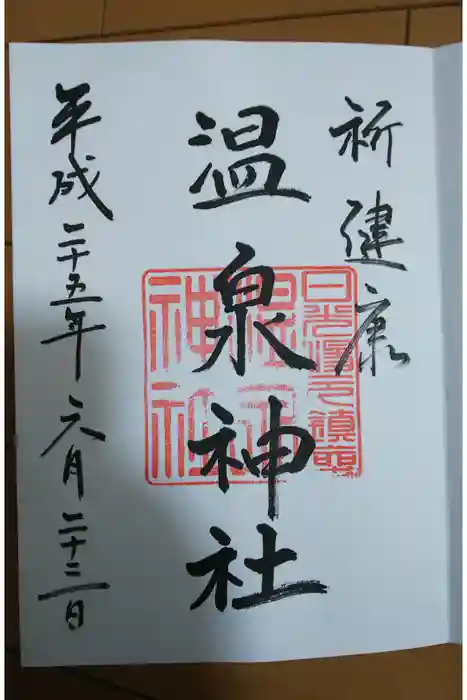 祈健康
温泉神社
平成二十五年六月二十三日
日光湯元鎮
温泉
神社